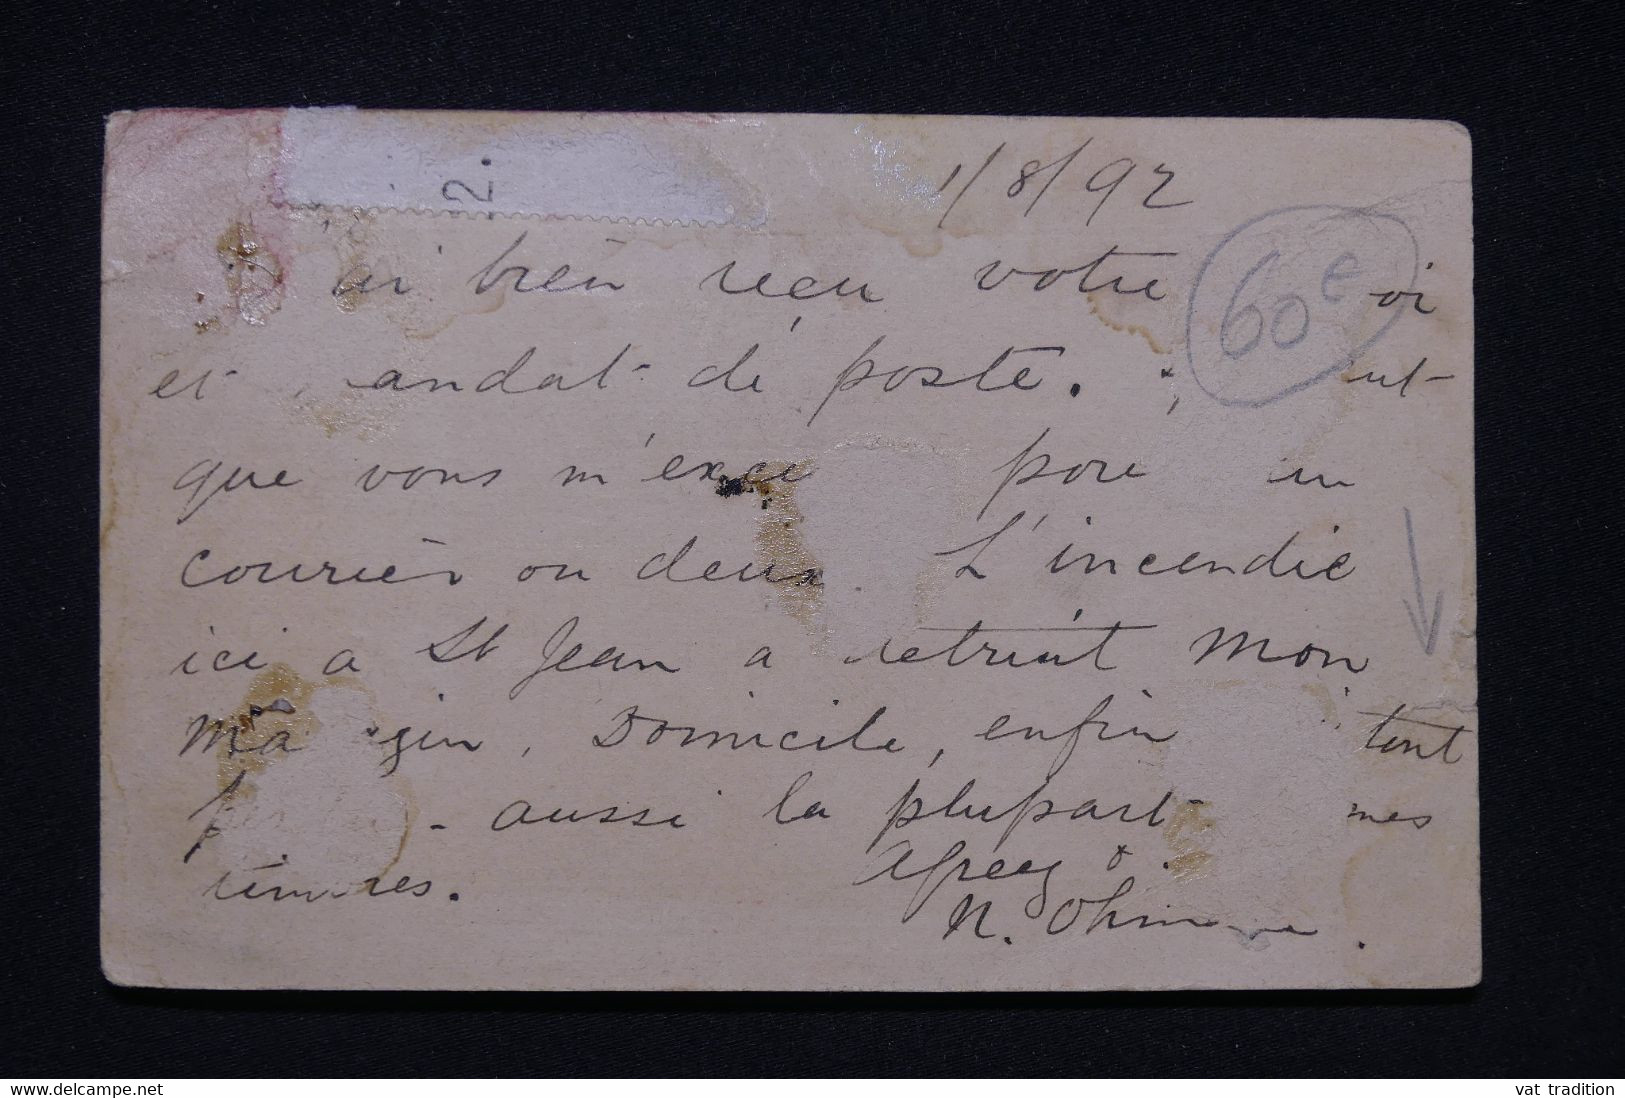 2.
1/8/92
ai bien reçu votre oi
60 €
et andat de poste. ut
que vous m'excu pour un
courier ou deux. L'incendie
ici a St Jean a detruit mon
ma gin, Domicile, enfin tout
aussi la plupart mes
timbres.
Agreez
N. Ohm
vat tradition
www.delcampe.net